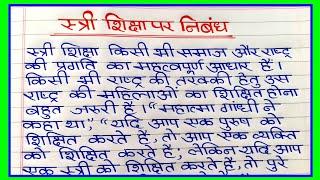 स्त्री शिक्षा पर निबंध
स्त्री शिक्षा किसी भी समाज और राष्ट्र
की प्रगति का महत्वपूर्ण आधार है।
किसी भी राष्ट्र की तरक्की हेतु उस
राष्ट्र की महिलाओं का शिक्षित होना
बहुत जरूरी है। "महात्मा गांधी ने
कहा था," "यदि आप एक पुरुष को
शिक्षित करते हैं, तो आप एक व्यक्ति
को शिक्षित करते हैं, लेकिन यदि आप
एक स्त्री को शिक्षित करते हैं, तो पूरे